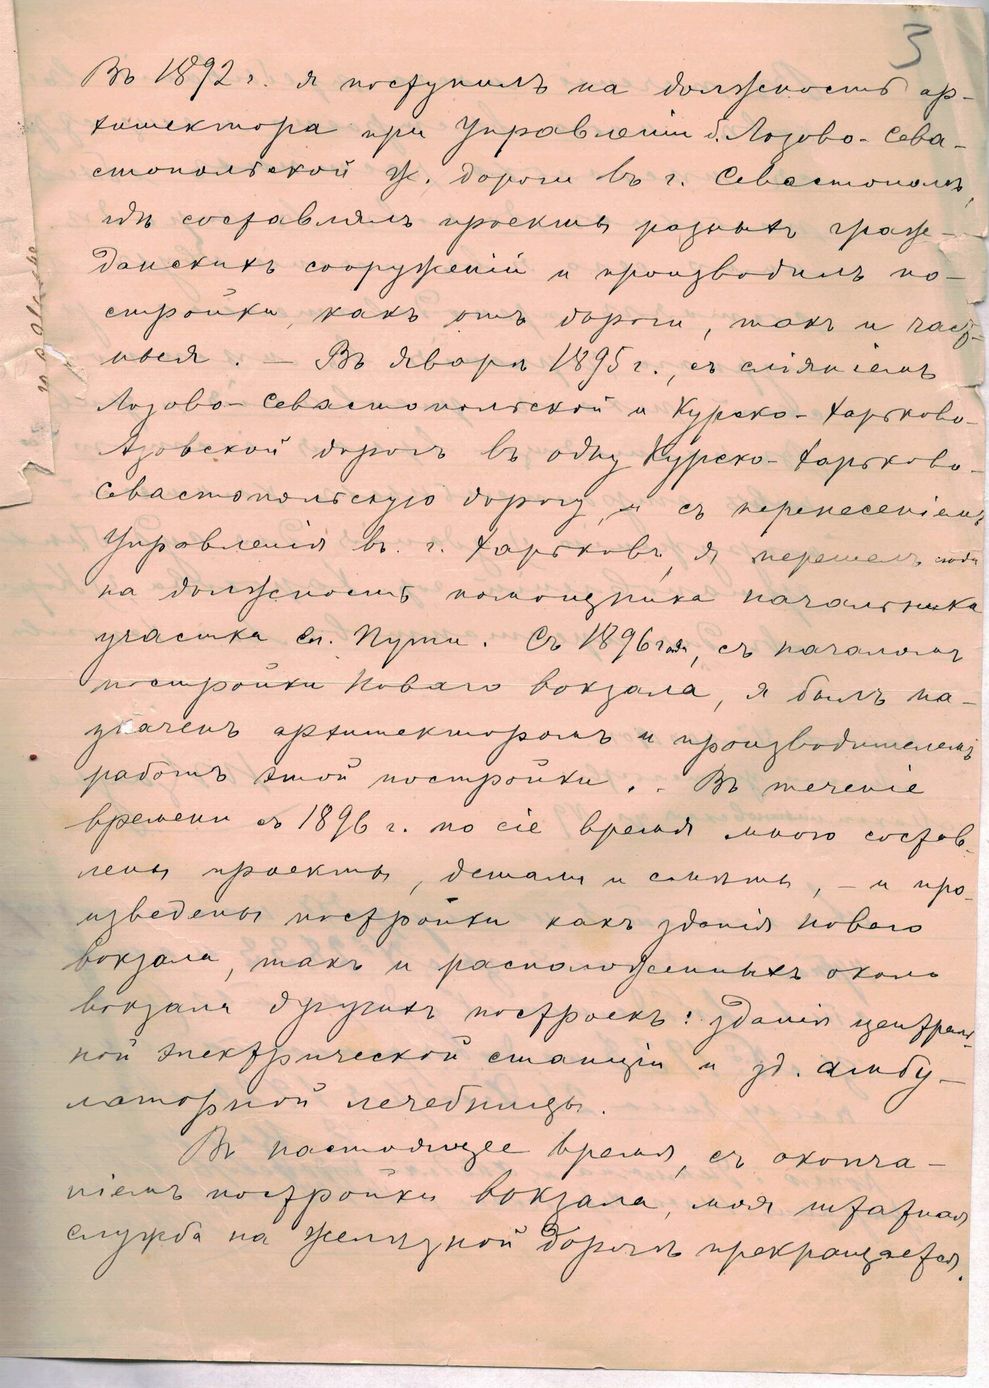 3
Въ 1892 г. я поступилъ на должность ар-
хитектора при Управленіи б. Лозово-Сева-
стопольской ж. дороги въ г. Севастополѣ,
гдѣ составлялъ проекты разныхъ граж-
данскихъ сооруженій и производилъ по-
стройки, какъ отъ дороги, такъ и част-
ныя. — Въ январѣ 1895 г., съ сліяніемъ
Лозово-Севастопольской и Курско-Харьково-
Азовской дорогъ въ одну Курско-Харьково-
Севастопольскую дорогу, и съ перенесеніемъ
Управленія въ г. Харьковъ, я перешелъ сюда
на должность помощника начальника
участка сл. Пути. Съ 1896 года, съ началомъ
постройки новаго вокзала, я былъ на-
значенъ архитекторомъ и производителемъ
работъ этой постройки. - Въ теченіе
времени съ 1896 г. по сіе время мною состав-
лены проекты, детали и смѣты, — и про-
изведены постройки какъ зданія новаго
вокзала, такъ и расположенныхъ около
вокзала другихъ построекъ: зданія централь-
ной электрической станціи и зд. амбу-
латорной лечебницы.
Въ настоящее время, съ оконча-
ніемъ постройки вокзала, моя штатная
служба на желѣзной дорогѣ прекращается.